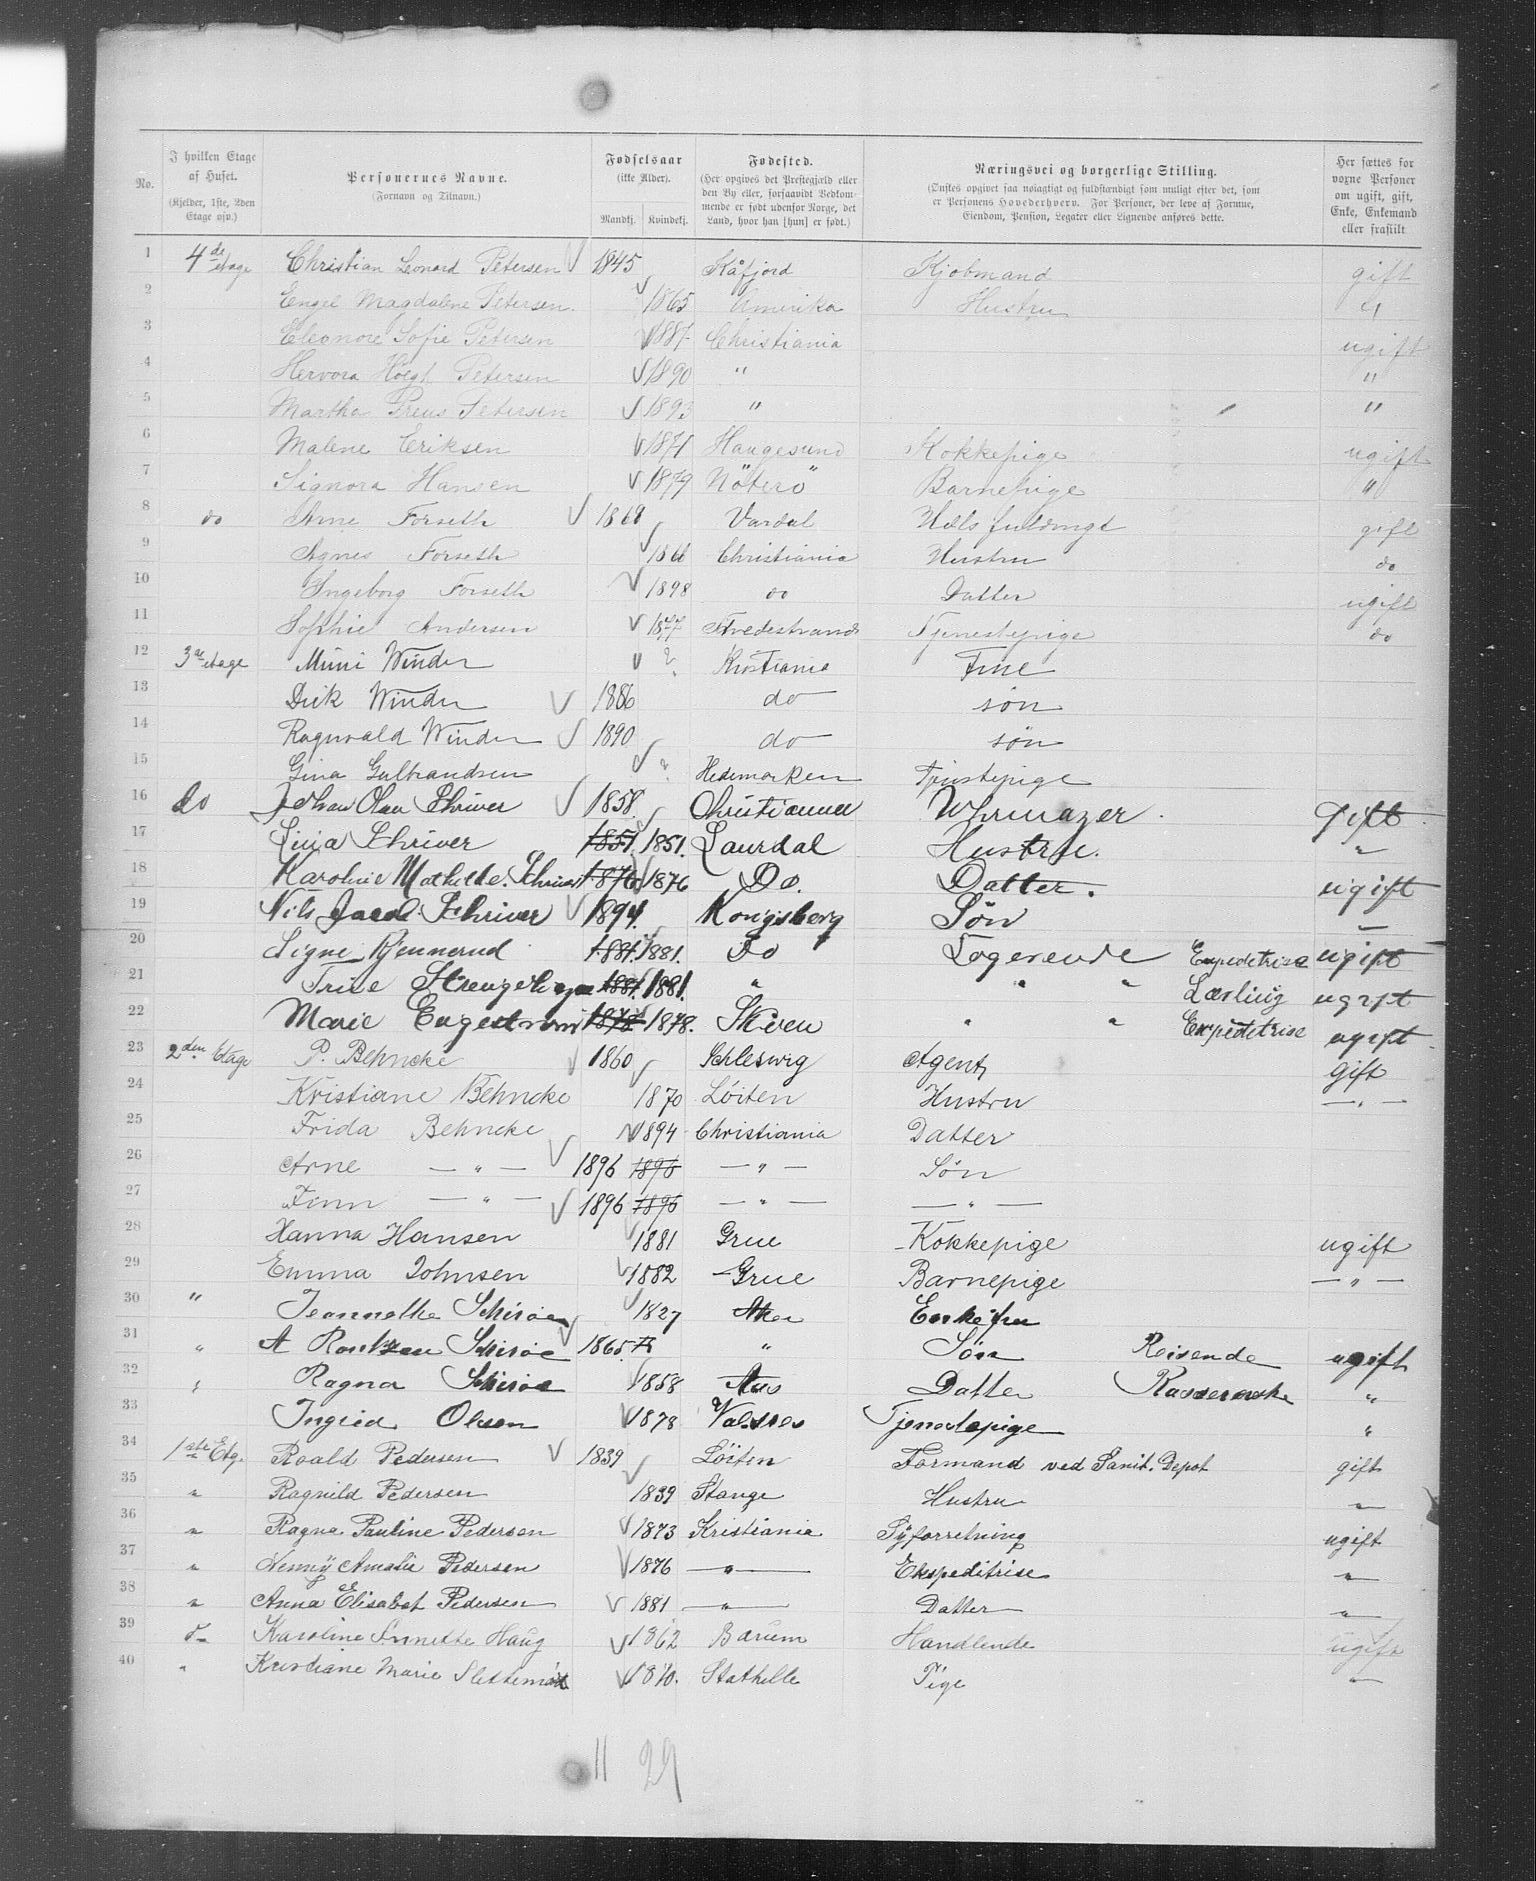 No. | I hvilken Etage af Huset. (Kjelder, 1ste, 2den Etage osv.) | Personernes Navne. (Fornavn og Tilnavn.) | Fødselsaar (ikke Alder). Mandkj. Kvindekj. | Fødested. (Her opgives det Prestegjæld eller den By eller, forsaavidt Vedkommende er født udenfor Norge, det Land, hvor han [hun] er født.) | Næringsvei og borgerlige Stilling. (Ønskes opgivet saa nøiagtigt og fuldstændigt som muligt efter det, som er Personens Hovederhverv. For Personer, der leve af Formue, Eiendom, Pension, Legater eller Lignende anføres dette. | Her sættes for voxne Personer om ugift, gift, Enke, Enkemand eller fraskilt
1 4de etage Christian Leonard Petersen 1845 Kåfjord Kjobmand gift
2 Engel Magdalene Petersen 1865 Amerika Hustru "
3 Eleonore Sofie Petersen 1887 Christiania ugift
4 Hervora Höegh Petersen 1890 " "
5 Martha Preus Petersen 1893 " "
6 Malene Eriksen 1871 Haugesund Kokkepige ugift
7 Signora Hansen 1879 Nöterö Barnepige "
8 do Arne Forseth 1868 Vardal gift
9 Agnes Forseth 1866 Christiania Hustru do
10 Ingeborg Forseth 1898 do Datter ugift
11 Sophie Andersen 1877 Tvedestrand Tjenestepige do
12 3de etage Mimi Winder ? Kristiania Frue
13 Dick Winder 1886 do søn
14 Ragnvald Winder 1890 do søn
15 Gina Gulbrandsen ? Hedemarken Tjenstepige
16 do Johan Olav Schriver 1858 Christiania Uhrmager gift
17 Lina Schriver 1851. 1851. Laurdal Hustru. "
18 Karoline Mathilde Schriver 1876 1876 Do. Datter. ugift
19 Nils Jacob Schriver 1894. Kongsberg Søn —
20 Signe Bjennerud 1881. 1881. Do Logerende Expedetrise ugift
21 Trine 1881. 1881. " " " Lærling ugift
22 Marie Engestrøm 1878 1878. Skien " " Expedetrise ugift
23 2den Etage P. Behncke 1860 Schleswig Agent gift
24 Kristiane Behncke 1870 Löiten Hustru — " —
25 Frida Behncke 1894 Christiania Datter
26 Arne — " — 1896 1896 — " — Sön
27 Finn — " — 1896 1896 — " — — " —
28 Hanna Hansen 1881 Grue Kokkepige ugift
29 Emma Johnsen 1882 Grue Barnepige — " —
30 " Jeannethe Schiröe 1827 Aker Enkefru
31 " A Rontzau Schiröe 1865. " Sön Reisende ugift
32 " Ragna Schiröe 1858 Aas Datter Kassererske "
33 Ingrid Olsen 1878 Valdres Tjenestepige "
34 1ste Etg. Roald Pedersen 1839 Löiten Formand ved Sanit. Depot gift
35 " Ragnild Pedersen 1839 Stange Hustru "
36 " Ragna Pauline Pedersen 1873 Kristiania Syforretning ugift
37 " Jenny Amalie Pedersen 1876 — " — Ekspeditrise "
38 " Anna Elisabet Pedersen 1881 — " — Datter "
39 Karoline Annette Haug 1862 Bærum Handlende ugift
40 " Kristiane Marie 1870. Stathelle Pige "
11 29